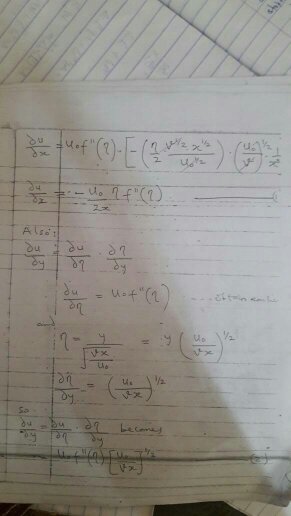 ∂u/∂x = u₀f″(η) · [−(η/2 ν^{1/2} x^{1/2} / u₀^{1/2}) · (u₀/ν)^{1/2} · 1/x
∂u/∂x = − u₀/2x η f″(η)
Also:
∂u/∂y = ∂u/∂η · ∂η/∂y
∂u/∂η = u₀f″(η)
and
η = y/√(νx/u₀) = y (u₀/νx)^{1/2}
∂η/∂y = (u₀/νx)^{1/2}
so
∂u/∂y = ∂u/∂η · ∂η/∂y becomes
= u₀f″(η) [u₀/νx]^{1/2}